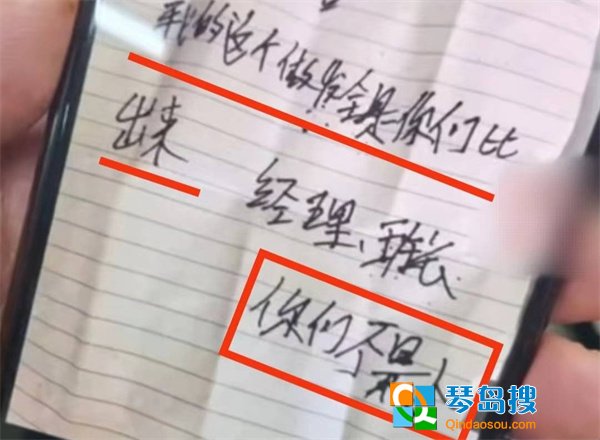 我的这个做发全是你们比
出来
经理、班长
你们不是人
琴岛搜
Qindaosou.com